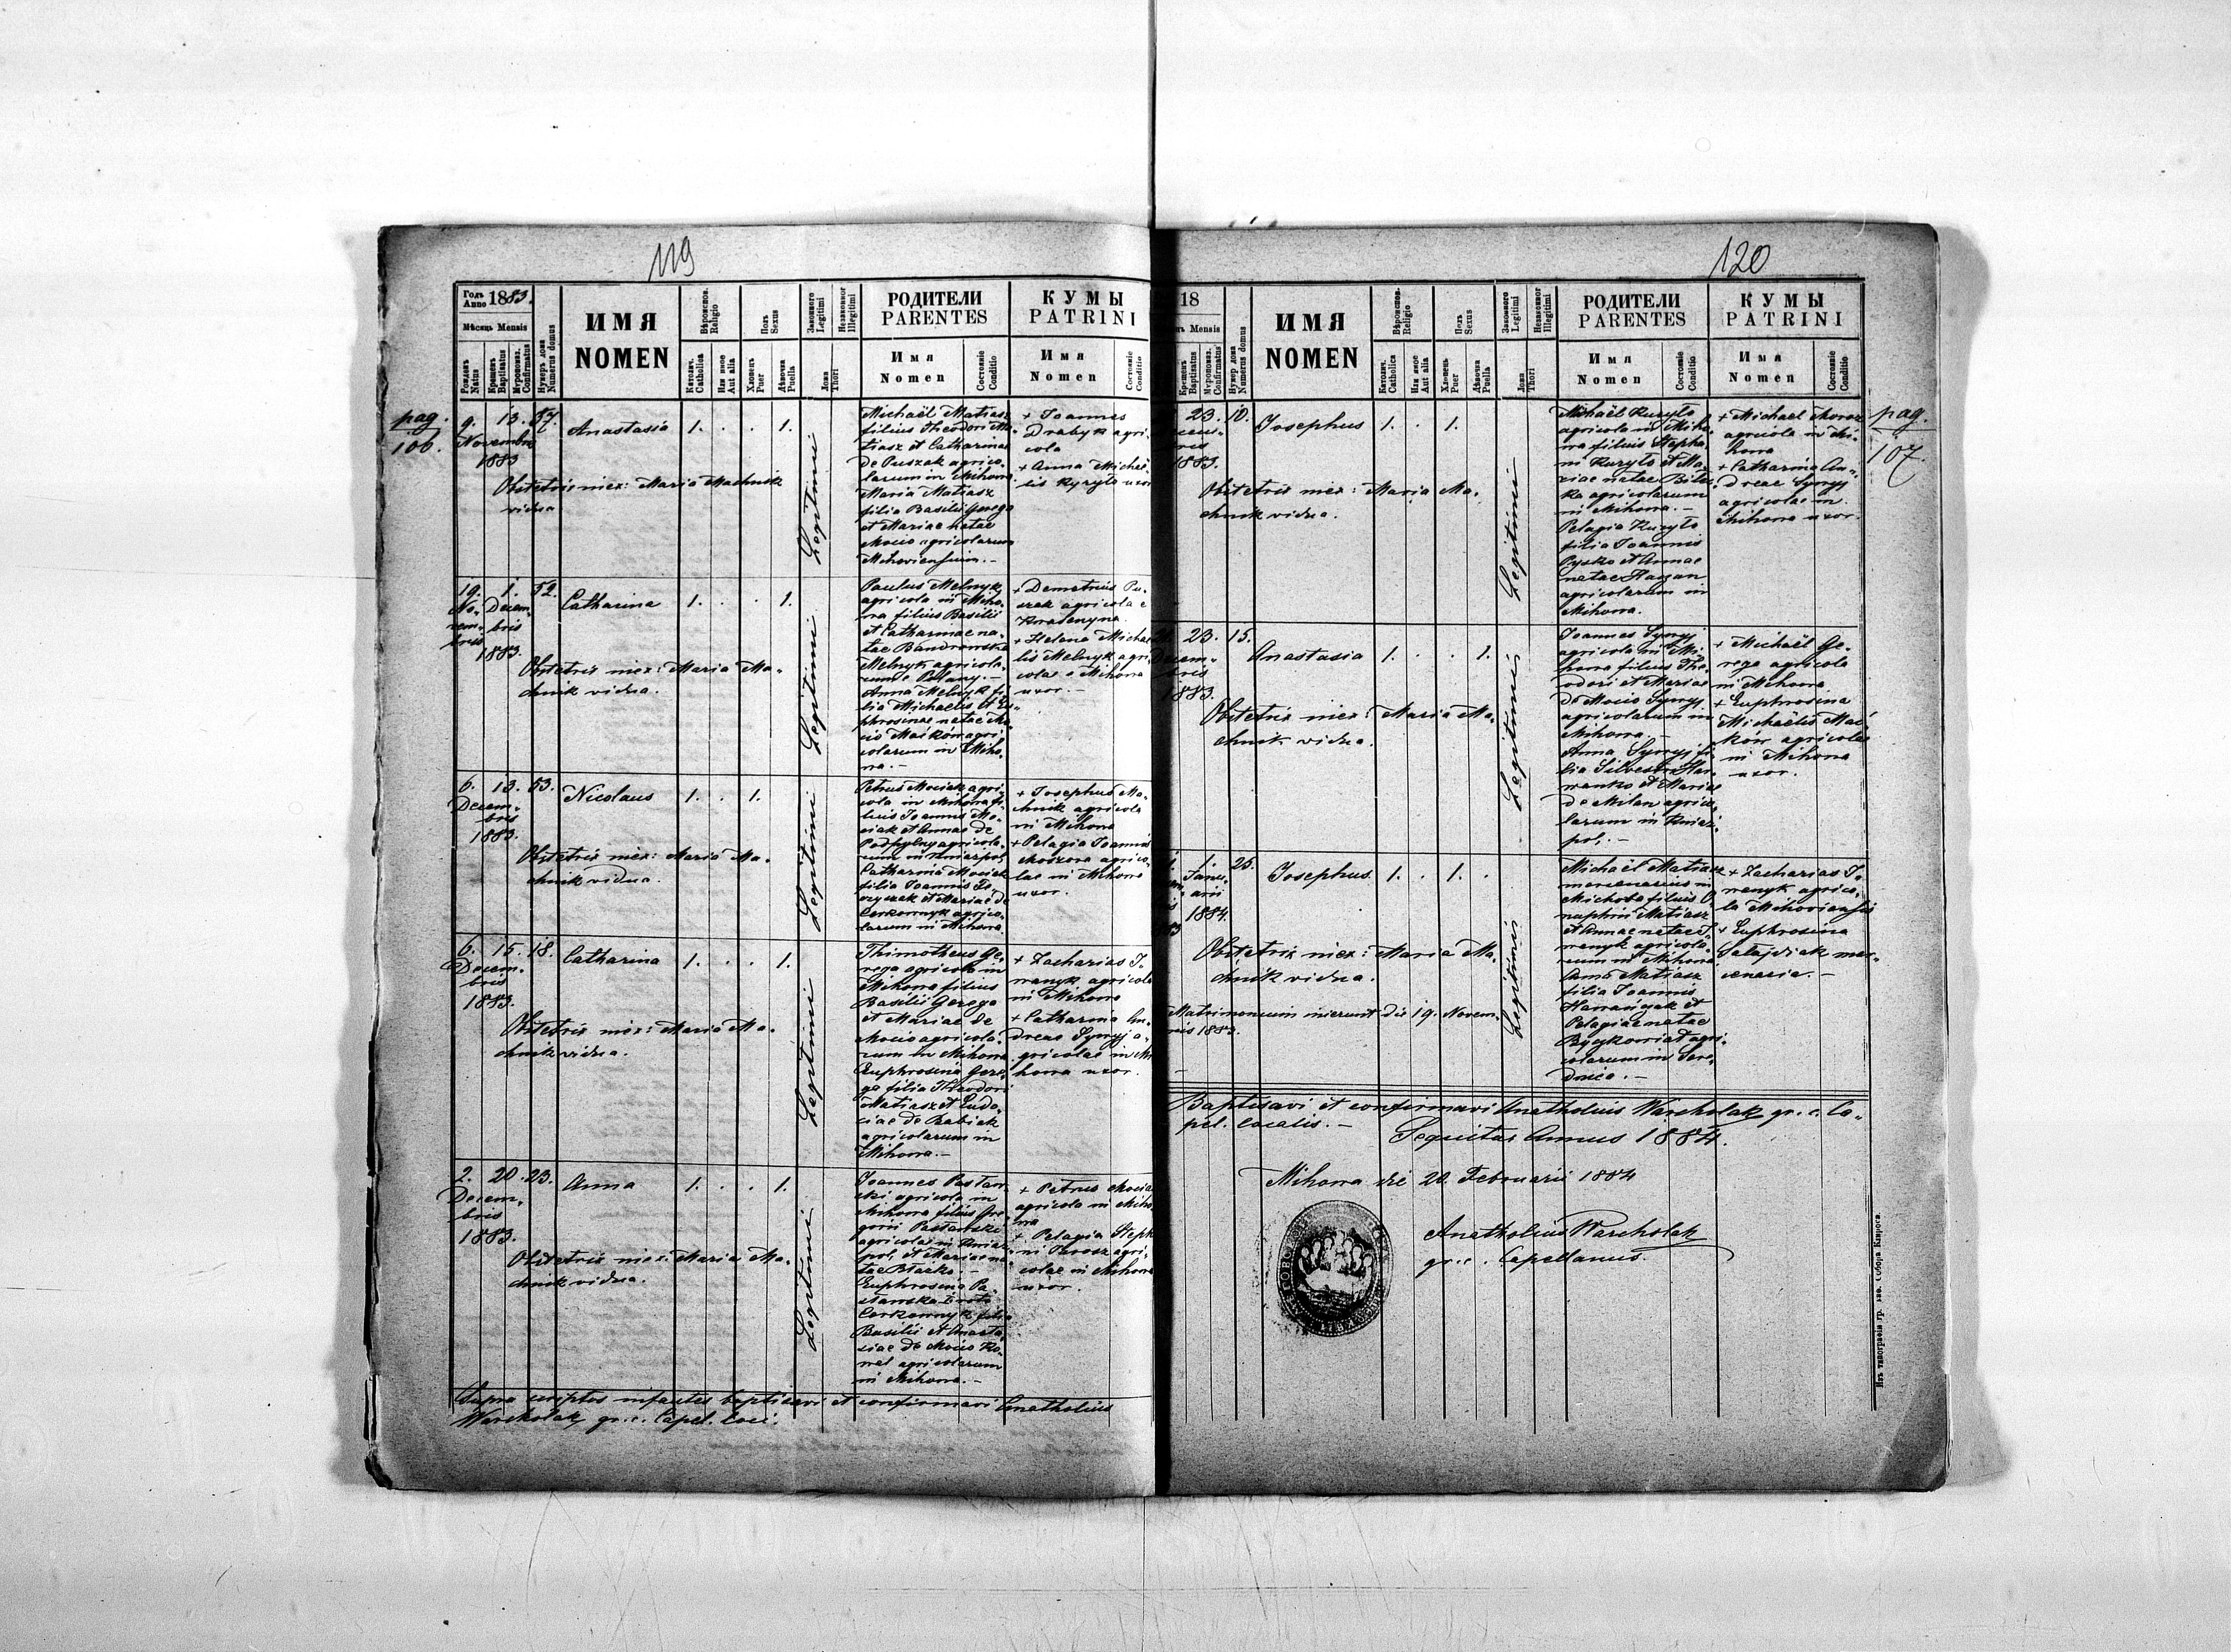 119
Годъ Anno 1883.
Мѣсяць Mensis
Рожденъ Natus
Крещенъ Baptisatus
Мѵропомаз. Confirmatus
Нумеръ дома Numerus domus
ИМЯ
NOMEN
Вѣроиспов. Religio
Католич. Catholica
Или иное Aut alia
Полъ Sexus
Хлопецъ Puer
Дѣвочка Puella
Законного Legitimi
Незаконног Illegitimi
Ложа Thori
РОДИТЕЛИ
PARENTES
Имя
Nomen
Состояніе Conditio
КУМЫ
PATRINI
Имя
Nomen
Состояніе Conditio
pag.
106.
9. 13. 87.
Novembris
1883
Anastasia 1. . . 1.
Obstetrix nex: Maria Machnik
vidua
Legitimi
Michaël Matiasz
filius Theodori Ma-
tiasz et Catharinae
de Puszak agrico-
larum in Mihowa
Maria Matiasz
filia Basilii Gerega
et Mariae natae
Mocio agricolarum
Mihoviensium.-
+ Joannes
Drabyk agri-
cola
+ Anna Michaë-
lis Kyryło uxor
19. 1. 52.
No- Decem-
vem- bris
bris
1883.
Catharina 1. . . 1.
Obstetrix nex: Maria Ma-
chnik vidua.
Legitimi
Paulus Melnyk
agricola in Miho-
wa filius Basilii
et Catharinae na-
tae Bandrowska
Melnyk agricola-
rum e Polany.-
Anna Melnyk fi-
lia Michaelis et Eu-
phrosinae natae Mo-
cio Maćków agri-
colarum in Miho-
wa.-
+ Demetrius Pu-
szak agricola e
Kwaszenyna
+ Helena Michae-
lis Melnyk agri-
colae e Mihowa
uxor.-
6. 13. 53.
Decem-
bris
1883.
Nicolaus 1. . 1.
Obstetrix nex: Maria Ma-
chnik vidua.
Legitimi
Petrus Mociak agri-
cola in Mihowa fi-
lius Joannis Mo-
ciak et Annae de
agricola-
rum in Kniaźpol,
Catharina Mociak
filia Joannis
et Mariae de
Cerkownyk agrico-
larum in Mihowa.
+ Josephus Ma-
chnik agricola
in Mihowa
+ Pelagia Joannis
agrico-
lae in Mihowa
uxor.
6. 15. 18.
Decem-
bris
1883.
Catharina 1. . . 1.
Obstetrix nex: Maria Ma-
chnik vidua.
Legitimi
Thimotheus Ge-
rega agricola in
Mihowa filius
Basilii Gerega
et Mariae de
Mocio agricola-
rum in Mihowa
Euphrosina Gere-
ga filia Theodori
Matiasz et Eudo-
ciae de Drabiak
agricolarum in
Mihowa.-
+ Zacharias I-
wanyk agricola
in Mihowa
+ Catharina An-
dreae Synyj a-
gricolae in Mi-
howa uxor.
2. 20. 23.
Decem-
bris
1883.
Anna 1. . . 1.
Obstetrix nex: Maria Ma-
chnik vidua.
Legitimi
Joannes Pastaw-
ski agricola in
Mihowa filius Gre-
gorii Pastawski
agricolae in Kniaź-
pol, et Mariae na-
tae Błażko.-
Euphrosina Pa-
stawska 1 voto
Cerkownyk filia
Basilii et Anasta-
siae de Mocio Ko-
wal agricolarum
in Mihowa.-
+ Petrus Mociak
agricola in Miho-
wa
+ Pelagia Stepha-
ni Moroz agri-
colae in Mihowa
uxor.
Supra scriptos infantes baptisavi et confirmavi Anatholius
Warcholak, gr. c. Capel. loci.
120
18
Мѣсяць Mensis
Крещенъ Baptisatus
Мѵропомаз. Confirmatus
Нумер дома Numerus domus
ИМЯ
NOMEN
Вѣроиспов. Religio
Католич. Catholica
Или иное Aut alia
Полъ Sexus
Хлопецъ Puer
Дѣвочка Puella
Законного Legitimi
Незаконног Illegitimi
Ложа Thori
РОДИТЕЛИ
PARENTES
Имя
Nomen
Состояніе Conditio
КУМЫ
PATRINI
Имя
Nomen
Состояніе Conditio
pag.
107.
23. 10.
1883.
Josephus 1. . 1.
Obstetrix nex: Maria Ma-
chnik vidua.
Legitimi
Michaël Kuryło
agricola in Miho-
wa filius Stepha-
ni Kuryło et Ma-
riae natae Bilas-
ka agricolarum
in Mihowa.-
Pelagia Kuryło
filia Joannis
Pysko et Annae
natae Hazan
agricolarum in
Mihowa.
+ Michael Moroz
agricola in Mi-
howa
+ Catharina An-
dreae Synyj
agricolae in
Mihowa uxor.
23. 15.
Decem-
bris
1883.
Anastasia 1. . . 1.
Obstetrix nex: Maria Ma-
chnik vidua.
Legitimi
Joannes Synyj
agricola in Mi-
howa filius The-
odori et Mariae
de Mocio Synyj
agricolarum in
Mihowa.-
Anna Synyj fi-
lia Silvestri Har-
wanko et Mariae
de Milan agrico-
larum in Kniaź-
pol,.-
+ Michaël Ge-
rega agricola
in Mihowa
+ Euphrosina
Michaëlis Mać-
ków agricolae
in Mihowa
uxor.
1. 25.
Janu-
arii
1884.
Josephus. 1. . 1. .
Obstetrix nex: Maria Ma-
chnik vidua.
Matrimonium inierunt die 19. Novem-
bris 1882.
Legitimi
Michaël Matiasz
mercenarius in
Michowa filius O-
nuphrii Matiasz
et Annae natae I-
wanyk agricola-
rum in Mihowa
Anna Matiasz
filia Joannis
et
Pelagiae natae
agri-
colarum in Sere-
dnica.-
+ Zacharias I-
wanyk agrico-
la Mihoviensis
+ Euphrosina
Salajdiak mer-
cenaria.-
Baptisavi et confirmavi Anatholius Warcholak gr. c. Ca-
pel. localis.-
Sequitur Annus 1884.
Mihowa die 20. Februarii 1884
Anatholius Warcholak
gr. c. Capellanus.
Изъ типографіи гр. зав. Собора Кнпроса.